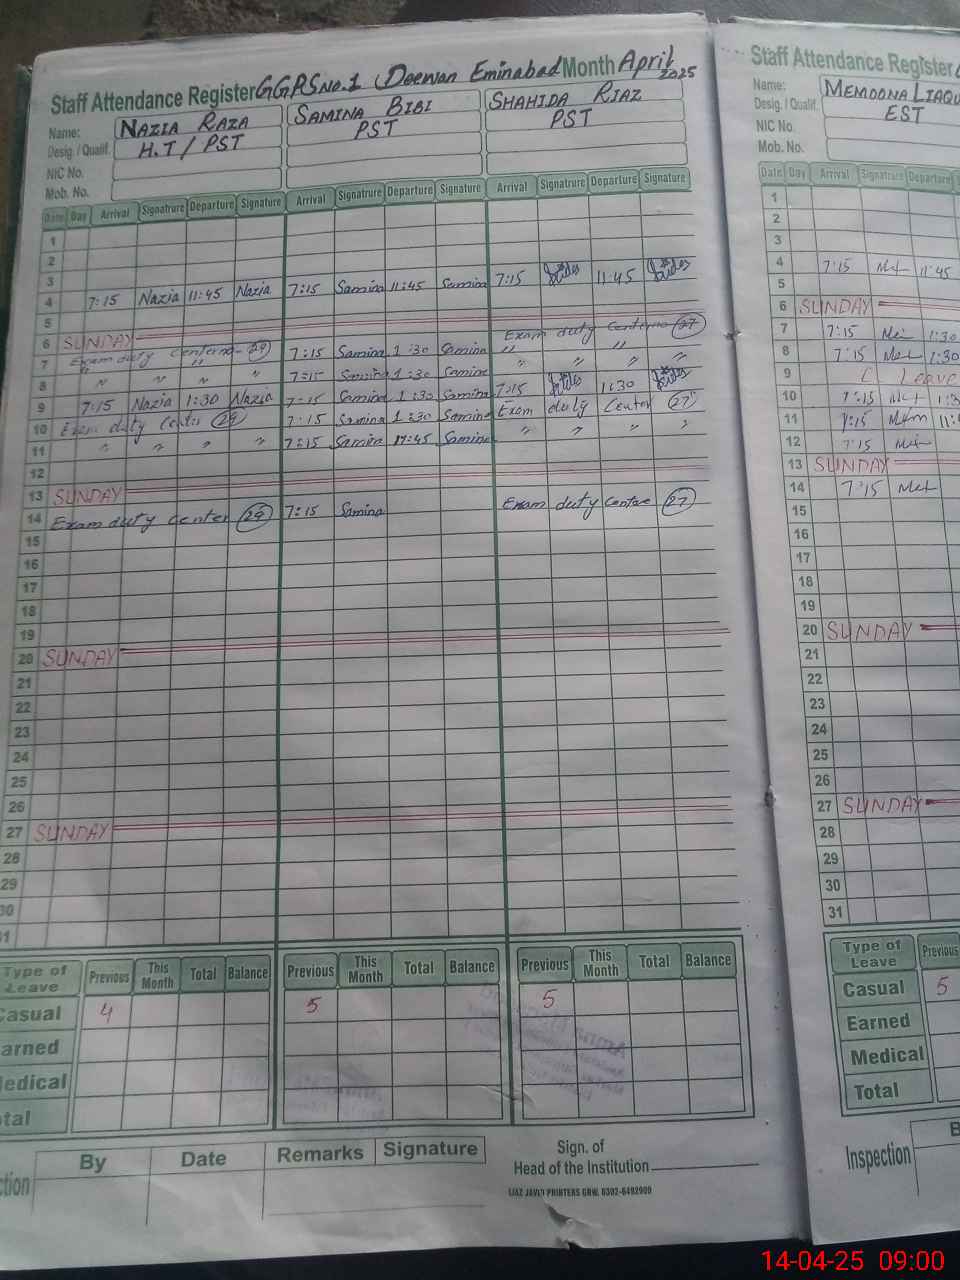 Staff Attendance Register GGPS No.1 Deewan Eminabad Month April 2025
Name: NAZIA RAZA SAMINA BIBI SHAHIDA RIAZ
Desig. / Qualif. H.T / PST PST PST
NIC No.
Mob. No.
Date Day Arrival Signatrure Departure Signature Arrival Signatrure Departure Signature Arrival Signatrure Departure Signature
1
2
3
4 7:15 Nazia 11:45 Nazia 7:15 Samina 11:45 Samina 7:15 11:45
5
6 SUNDAY
7 Exam duty 29 7:15 Samina 1:30 Samina Exam duty 27
8 " " " " 7:15 Samina 1:30 Samina " " " "
9 7:15 Nazia 1:30 Nazia 7:15 Samina 1:30 Samina 7:15 1:30
10 Exam duty Center 29 7:15 Samina 1:30 Samina Exam duty Center 27
11 " " " " 7:15 Samina Samina " " " "
12
13 SUNDAY
14 Exam duty center 29 7:15 Samina Exam duty Centre 27
15
16
17
18
19
20 SUNDAY
21
22
23
24
25
26
27 SUNDAY
28
29
30
31
Type of Leave Previous This Month Total Balance Previous This Month Total Balance Previous This Month Total Balance
Casual 4 5 5
Earned
Medical
Total
By Date Remarks Signature
Sign. of
Head of the Institution
IJAZ JAVID PRINTERS GRW. 0302-6492900
Staff Attendance Register
Name: MEMOONA LIAQU
Desig. / Qualif. EST
NIC No.
Mob. No.
Date Day Arrival Signatrure Departure
1
2
3
4 7:15 11:45
5
6 SUNDAY
7 7:15 1:30
8 7:15 1:30
9 C Leave
10 7:15
11 7:15
12 7:15
13 SUNDAY
14 7:15
15
16
17
18
19
20 SUNDAY
21
22
23
24
25
26
27 SUNDAY
28
29
30
31
Type of Leave Previous
Casual 5
Earned
Medical
Total
Inspection
14-04-25 09:00